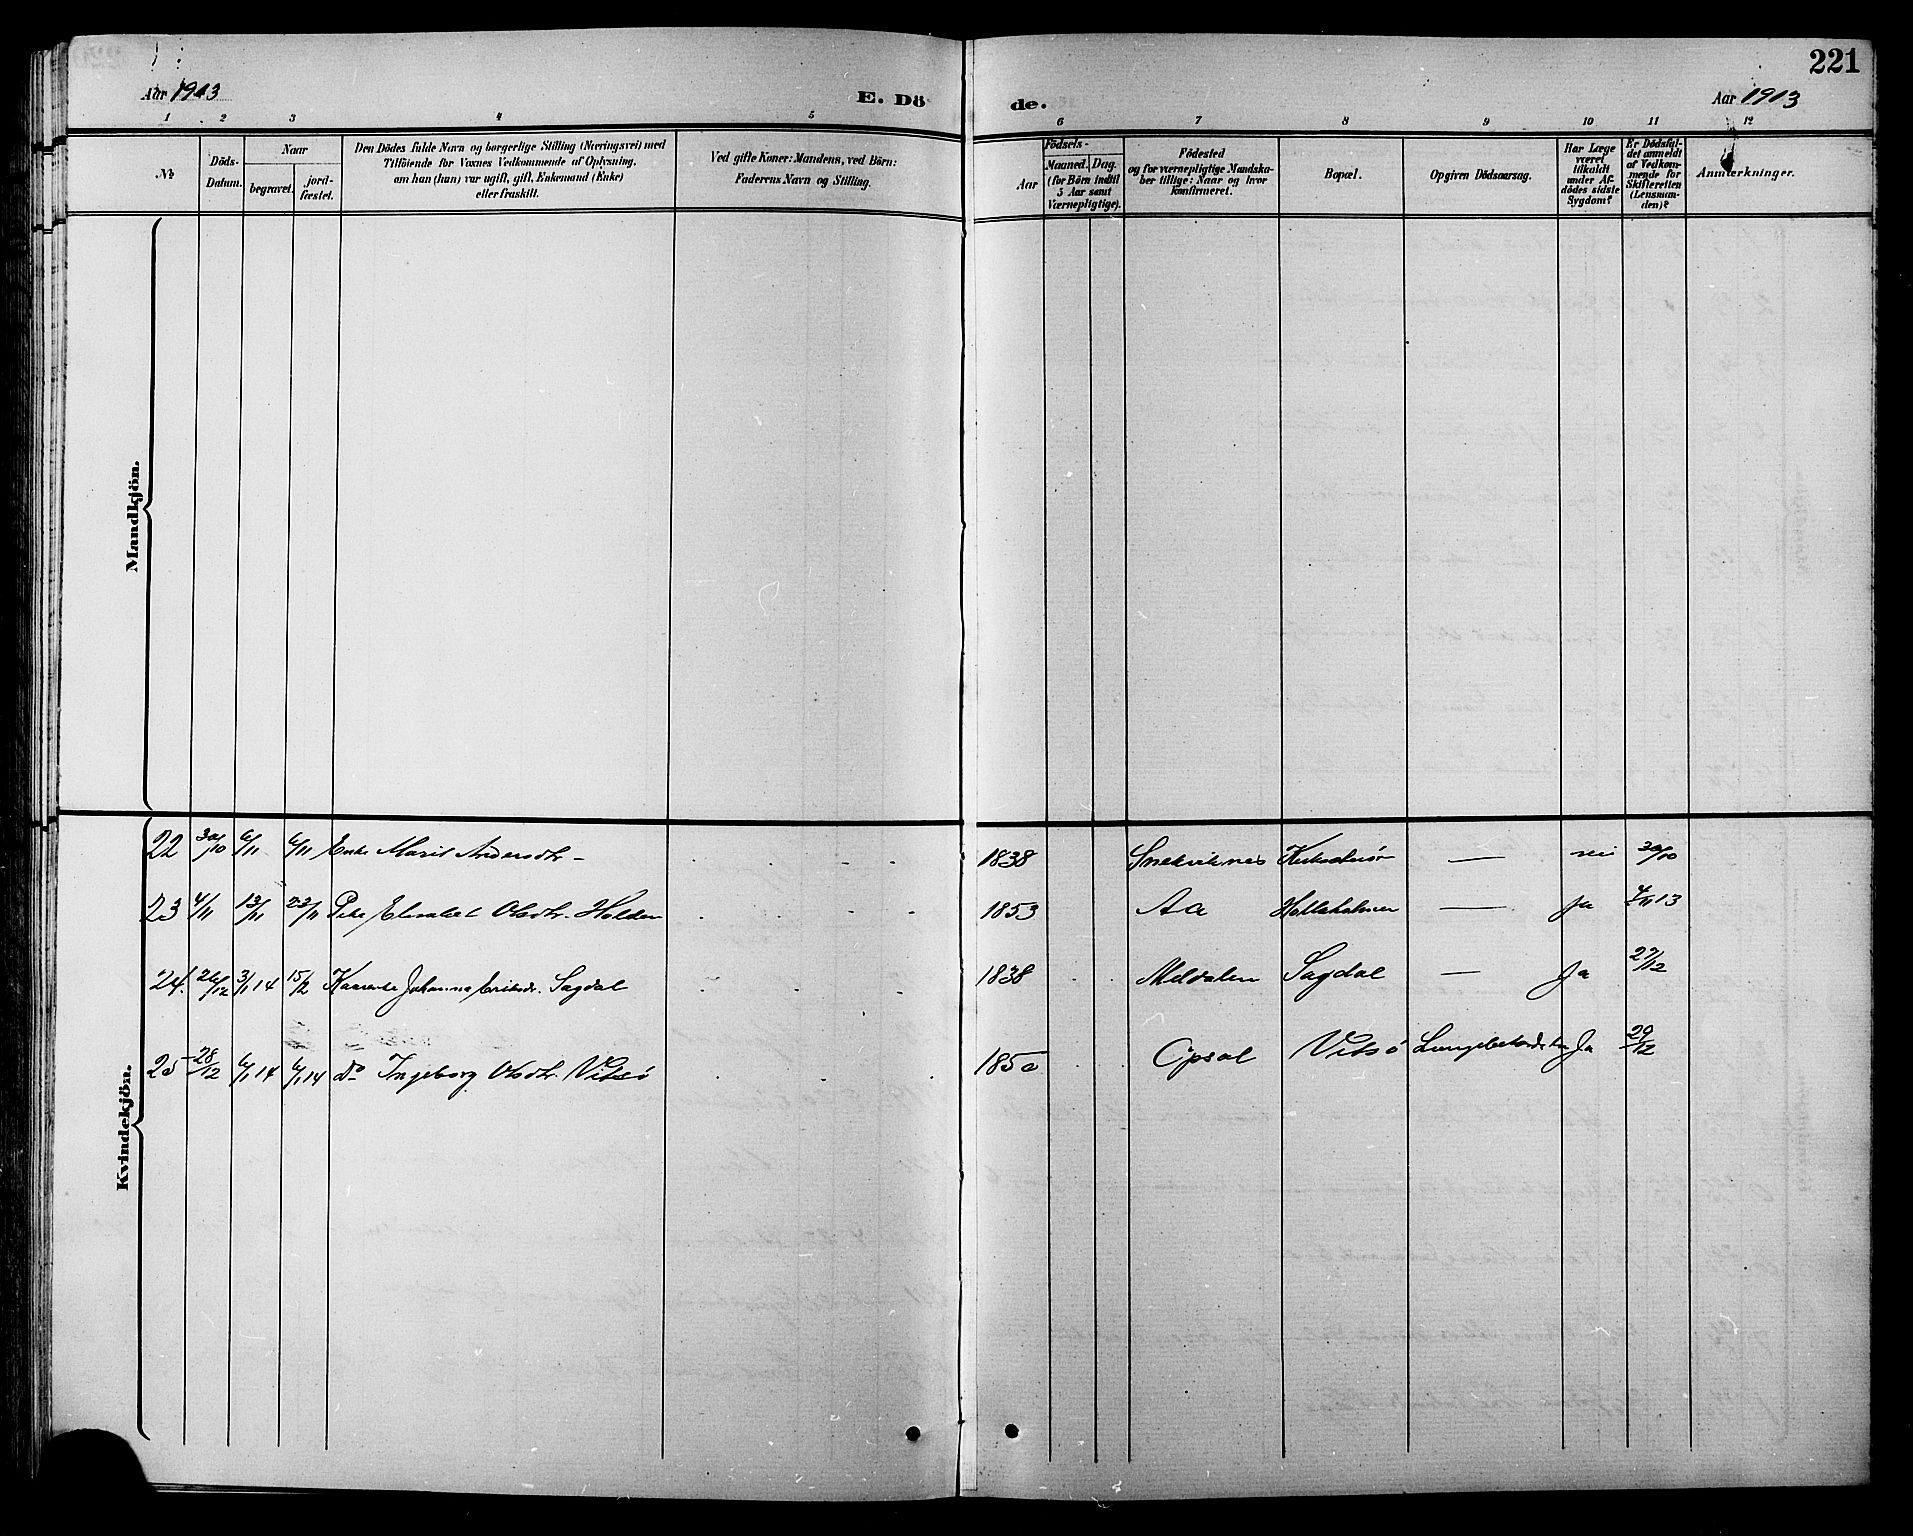 221
Aar 1913
E. Dö
de.
Aar 1913
1 2 3 4 5 6 7 8 9 10 11 12
No
Döds-
Datum.
Naar
begravet.
jord-
fæstet.
Den Dödes fulde Navn og borgerlige Stilling (Næringsvei) med
Tilföiende for Voxnes Vedkommende af Oplysning,
om han (hun) var ugift, gift, Enkemand (Enke)
eller fraskilt.
Ved gifte Koner: Mandens, ved Börn:
Faderens Navn og Stilling.
Födsels-
Aar
Maaned.
Dag.
(for Börn indtil
5 Aar samt
Værnepligtige).
Födested
og for værnepligtige Mandska-
ber tillige: Naar og hvor
konfirmeret.
Bopæl.
Opgiven Dödsaarsag.
Har Læge
været
tilkaldt
under Af-
dödes sidste
Sygdom?
Er Dödsfal-
det anmeldt
af Vedkom-
mende for
Skifteretten
(Lensman-
den)?
Anmærkninger.
Mandkjön.
Kvindekjön.
22 30/10 6/11 6/11 Enke Marit Andersdtr - 1838 Snekviknes nei 30/10
23 4/11 13/11 23/11 Pike Elisabet Olsdtr. Holden 1853 Aa Hollaholmen — Ja 4/11 13
24. 26/12 3/1 14 15/2 Johanna Eriksdr. Sagdal 1838 Meldalen Sagdal — Ja 27/12
25 28/12 6/1 14 6/1 14 do Ingeborg Olsdtr. Vitsö 1850 Opsal Vitsö Ja 29/12